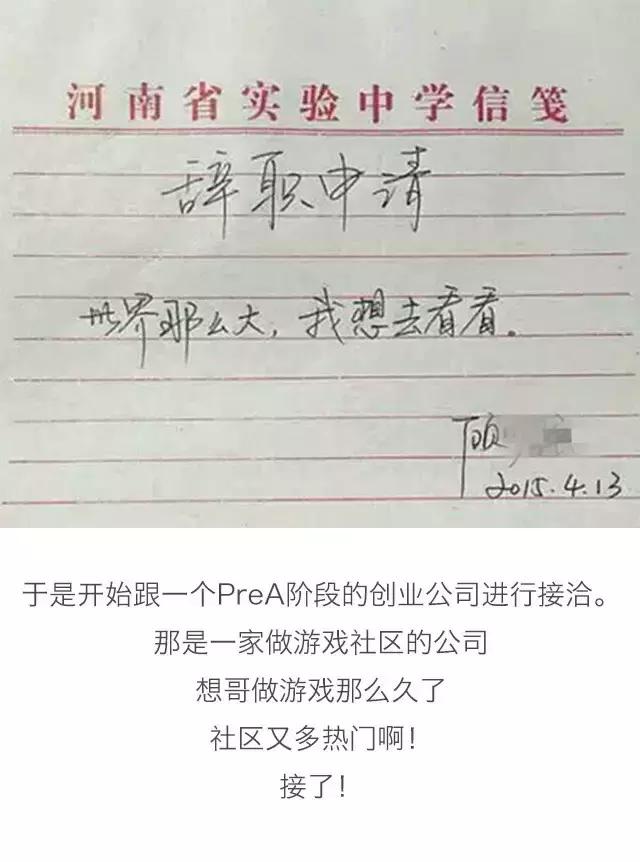 河南省实验中学信笺
辞职申请
世界那么大，我想去看看。
顾
2015.4.13
于是开始跟一个PreA阶段的创业公司进行接洽。
那是一家做游戏社区的公司
想哥做游戏那么久了
社区又多热门啊！
接了！